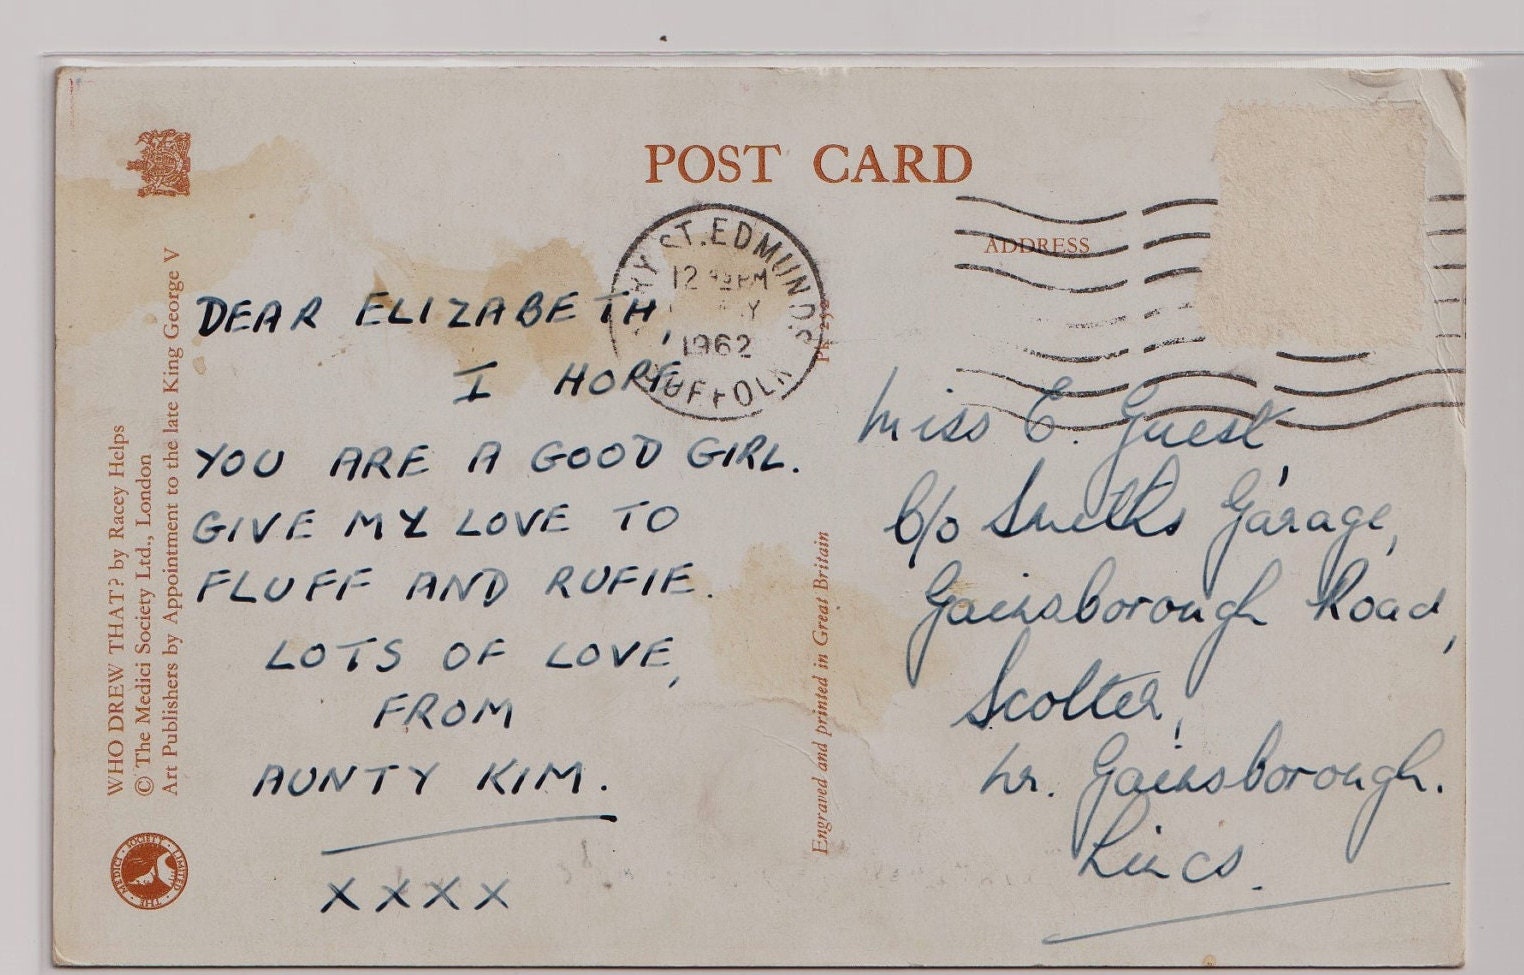 POST CARD
ADDRESS
BURY ST. EDMUNDS
12 PM
1962
SUFFOLK
DEAR ELIZABETH,
I HOPE
YOU ARE A GOOD GIRL.
GIVE MY LOVE TO
FLUFF AND RUFIE.
LOTS OF LOVE,
FROM
AUNTY KIM.
XXXX
Miss E. Guest,
C/o Smiths Garage,
Gainsborough Road,
Scotter,
Nr. Gainsborough.
Lincs.
WHO DREW THAT? by Racey Helps
© The Medici Society Ltd., London
Art Publishers by Appointment to the late King George V
THE MEDICI · SOCIETY · LIMITED
Engraved and printed in Great Britain